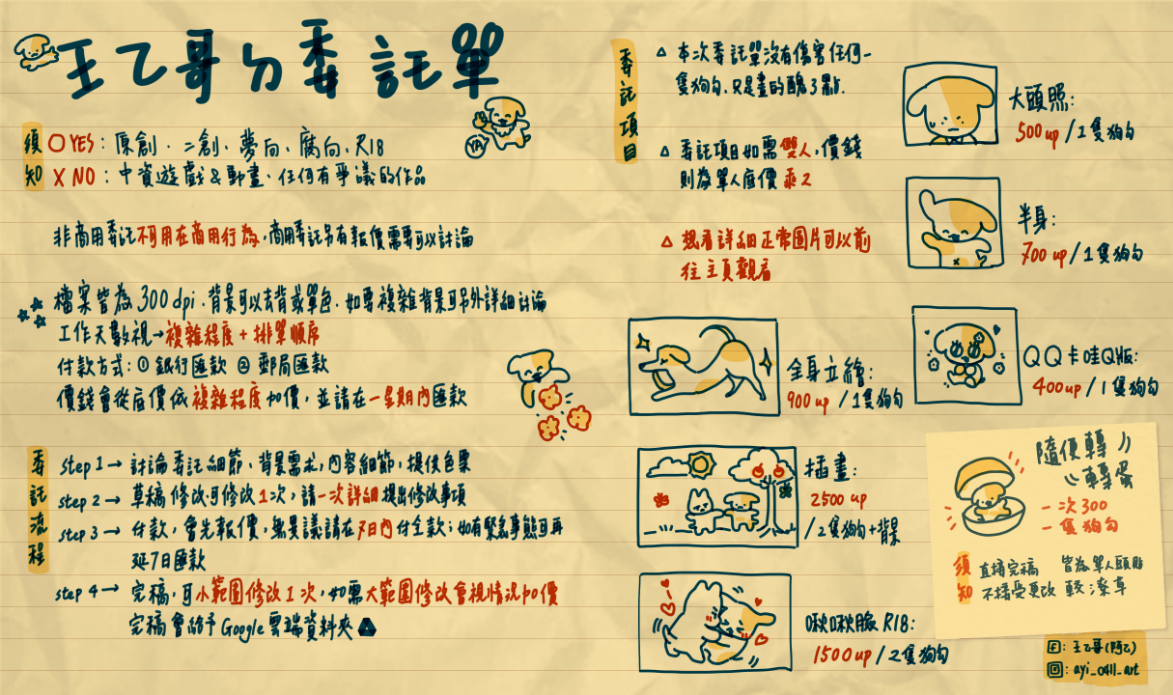 王乙哥ㄉ委託單
須知
O YES：原創、二創、夢向、腐向、R18
X NO：中資遊戲&動畫、任何有爭議的作品
非商用委託不可用在商用行為，商用委託另有報價需要可以討論
檔案皆為300dpi，背景可以去背或單色，如要複雜背景可另外詳細討論
工作天數視→複雜程度+排單順序
付款方式：① 銀行匯款 ② 郵局匯款
價錢會從底價依複雜程度加價，並請在一星期內匯款
委託流程
step 1→ 討論委託細節、背景需求，內容細節，提供色票
step 2→ 草稿修改可修改1次，請一次詳細提出修改事項
step 3→ 付款，會先報價，無異議請在7日內付全款；如有緊急事態可再
延7日匯款
step 4→ 完稿，可小範圍修改1次，如需大範圍修改會視情況加價
完稿會給予Google雲端資料夾
委託項目
△ 本次委託單沒有傷害任何一
隻狗勾，只是畫的醜了點.
△ 委託項目如需雙人，價錢
則為單人底價乘2
△ 想看詳細正常圖片可以前
往主頁觀看
大頭照：
500 up /1隻狗勾
半身：
700 up /1隻狗勾
全身立繪：
900 up /1隻狗勾
QQ卡哇Q版：
400up /1隻狗勾
插畫：
2500 up
/2隻狗勾+背景
啾啾臉R18：
1500up /2隻狗勾
隨便轉
轉蛋
一次300
一隻狗勾
須知
直播完稿 皆為單人頭貼
不接受更改 較潦草
F：王乙哥(阿乙)
：ayi_0411_art